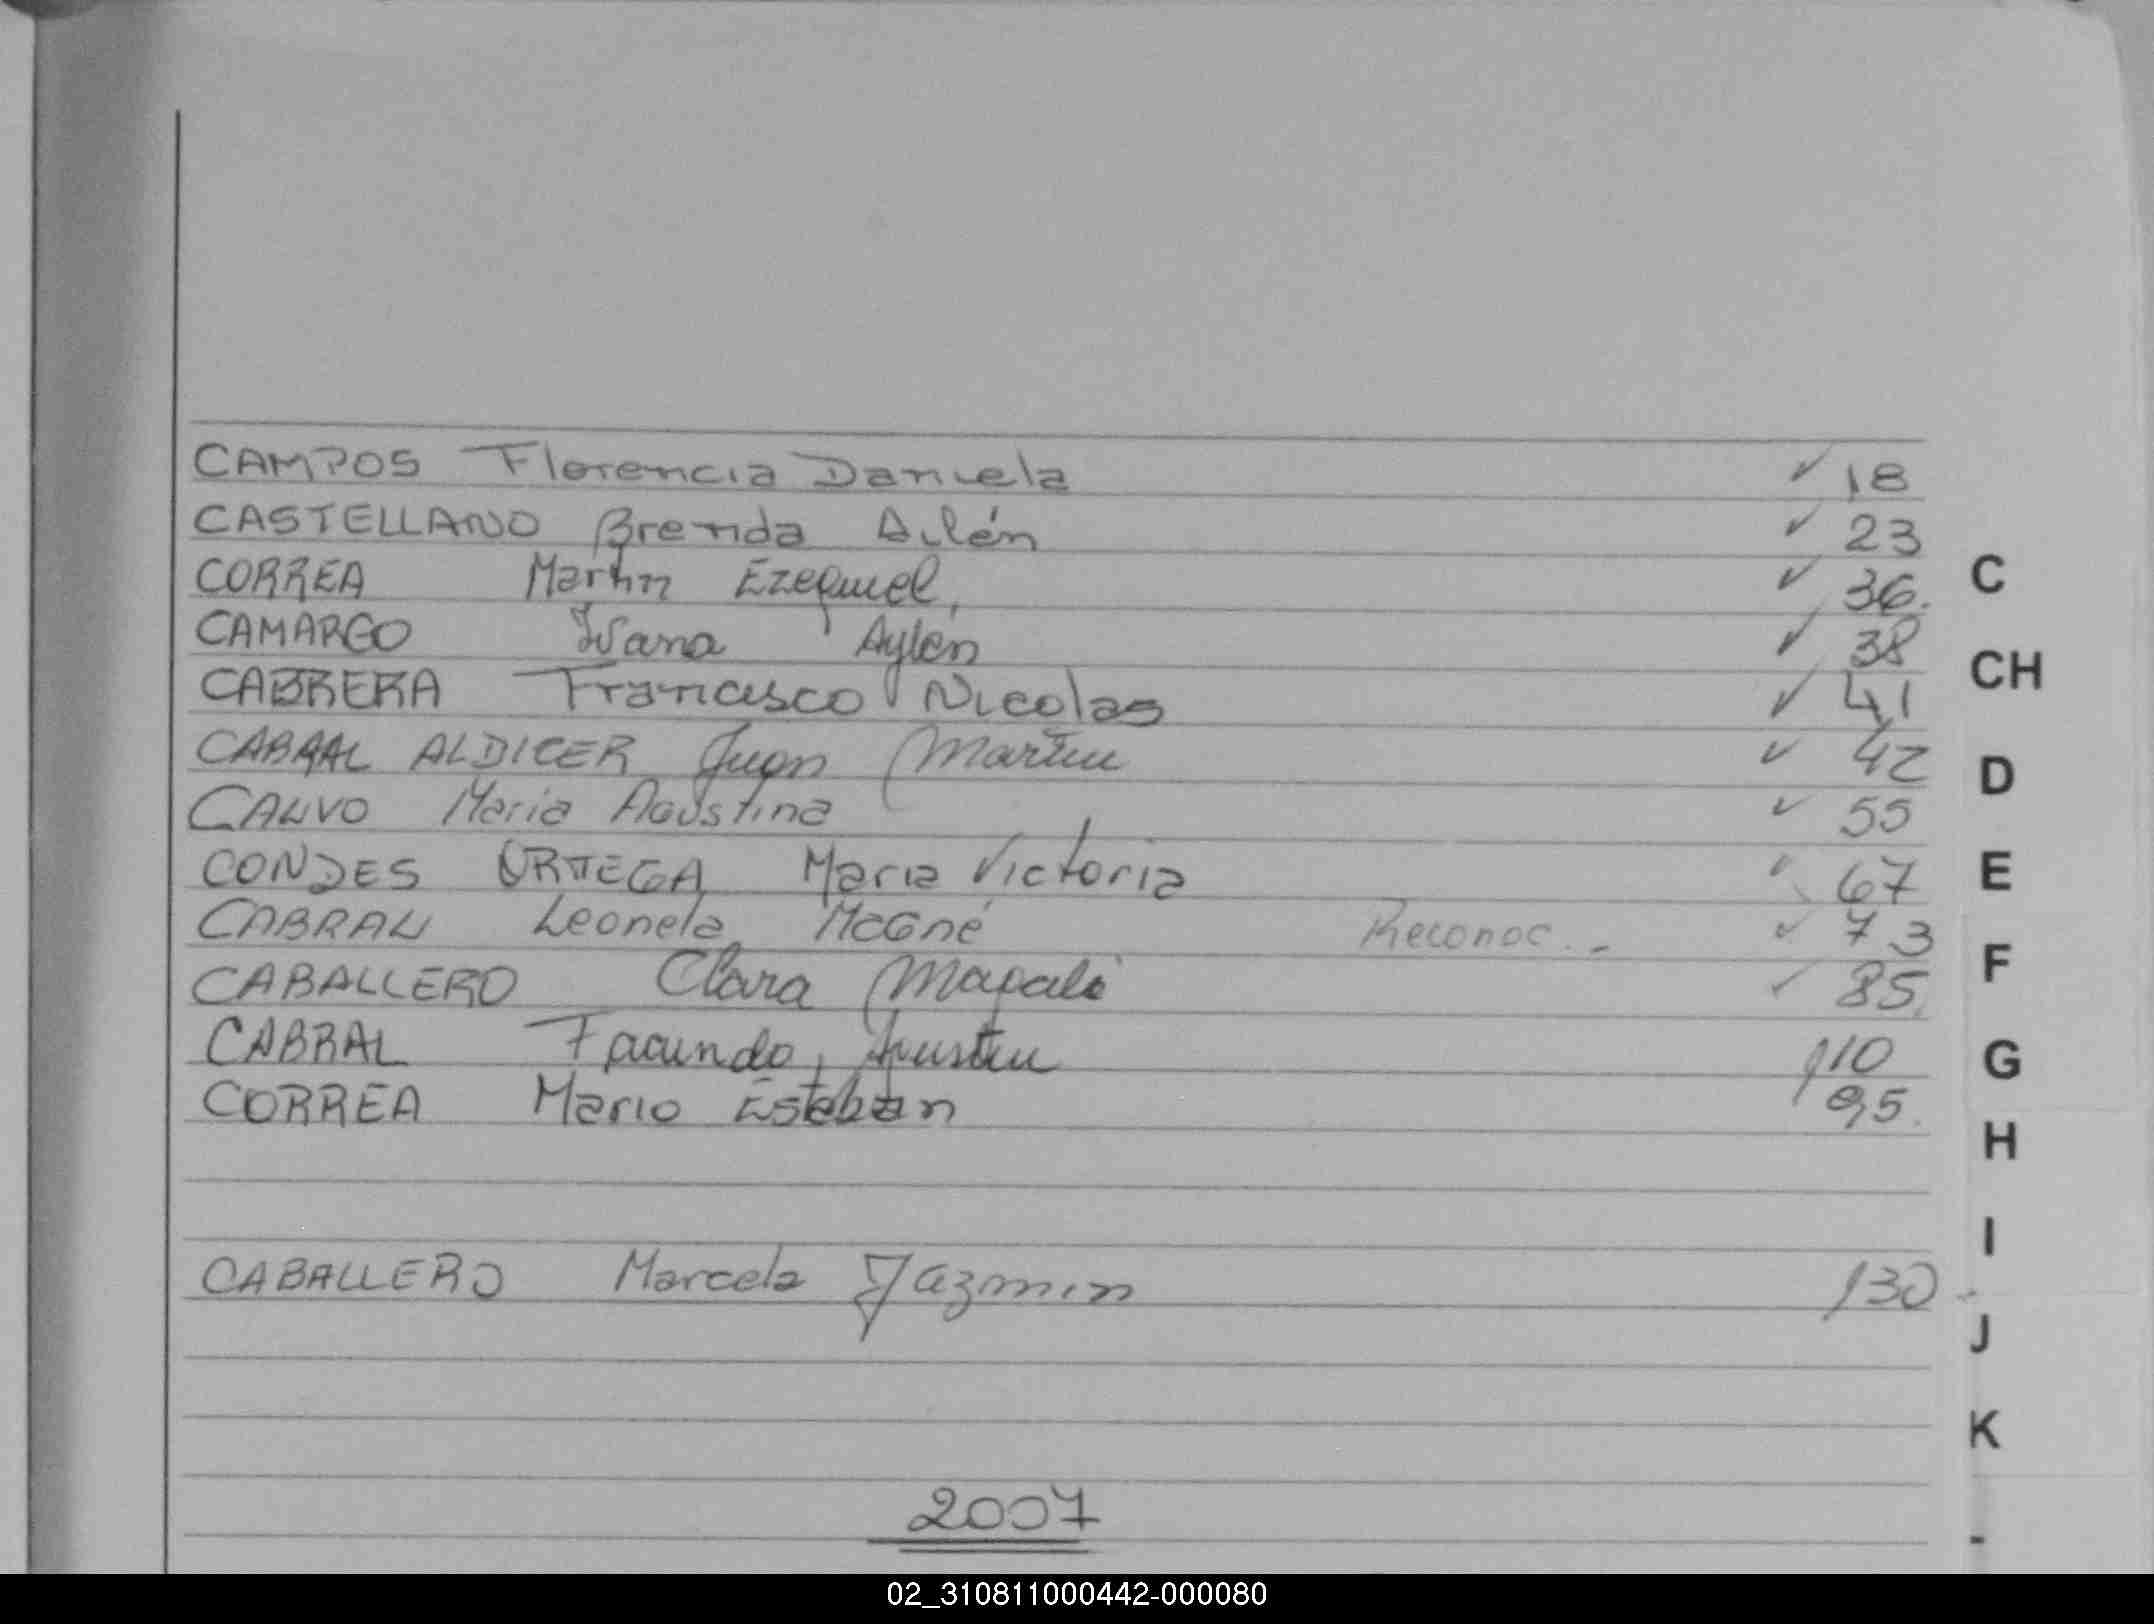 CAMPOS Florencia Daniela ✓ 18
CASTELLANO Brenda Ailén ✓ 23
CORREA Martin Ezequiel, ✓ 36.
CAMARGO Ivana Aylén ✓ 38
CABRERA Francisco Nicolas ✓ 41
CABRAL ALDICER Juan Martin ✓ 42
CALVO Maria Agustina ✓ 55
CONDES ORTEGA Maria Victoria ✓ 67
CABRAL Leonela Reconoc.. - ✓ 73
CABALLERO Clara Magali ✓ 85.
CABRAL Facundo Agustin 110
CORREA Mario Esteban 95.
CABALLERO Marcela Jazmin 130
2007
C
CH
D
E
F
G
H
I
J
K
02_310811000442-000080